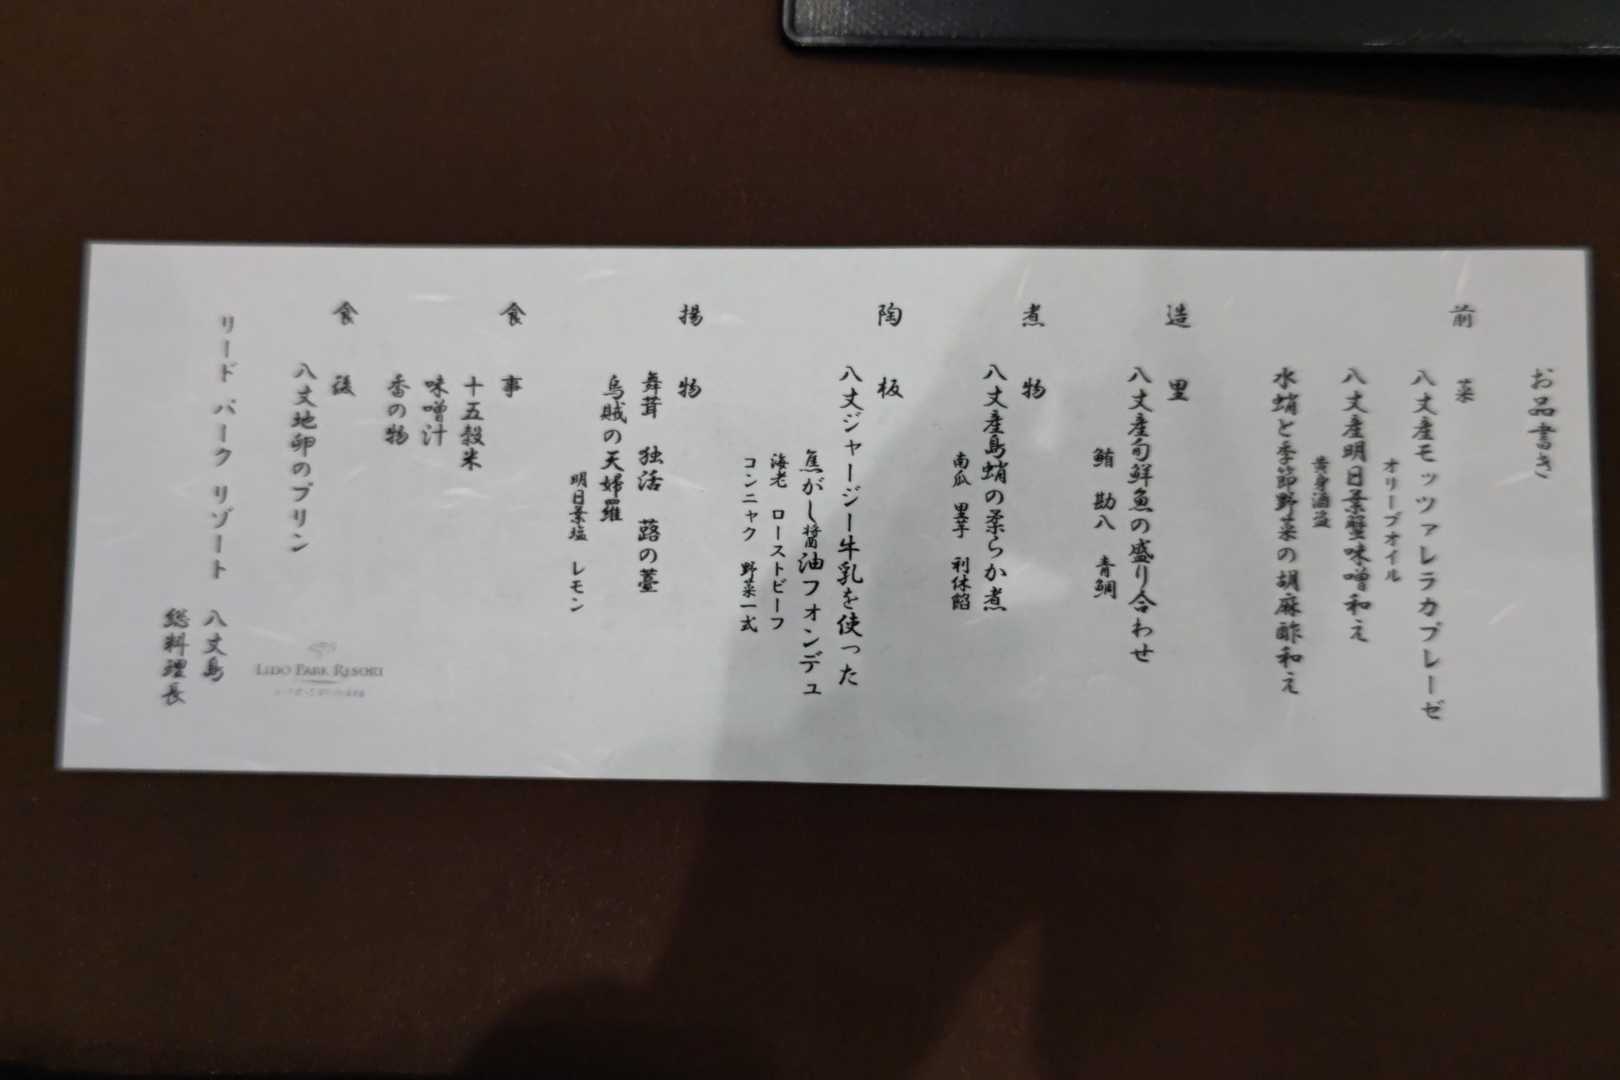 お品書き
前菜
八丈産モッツァレラカプレーゼ
オリーブオイル
八丈産明日葉蟹味噌和え
黄身酒盗
水蛸と季節野菜の胡麻酢和え
造里
八丈産旬鮮魚の盛り合わせ
鮪 勘八 青鯛
煮物
八丈産島蛸の柔らか煮
南瓜 里芋 利休餡
陶板
八丈ジャージー牛乳を使った
焦がし醤油フォンデュ
海老 ローストビーフ
コンニャク 野菜一式
揚物
舞茸 独活 蕗の薹
烏賊の天婦羅
明日葉塩 レモン
食事
十五穀米
味噌汁
香の物
食後
八丈地卵のプリン
リード パーク リゾート 八丈島
総料理長
LIDO PARK RESORT